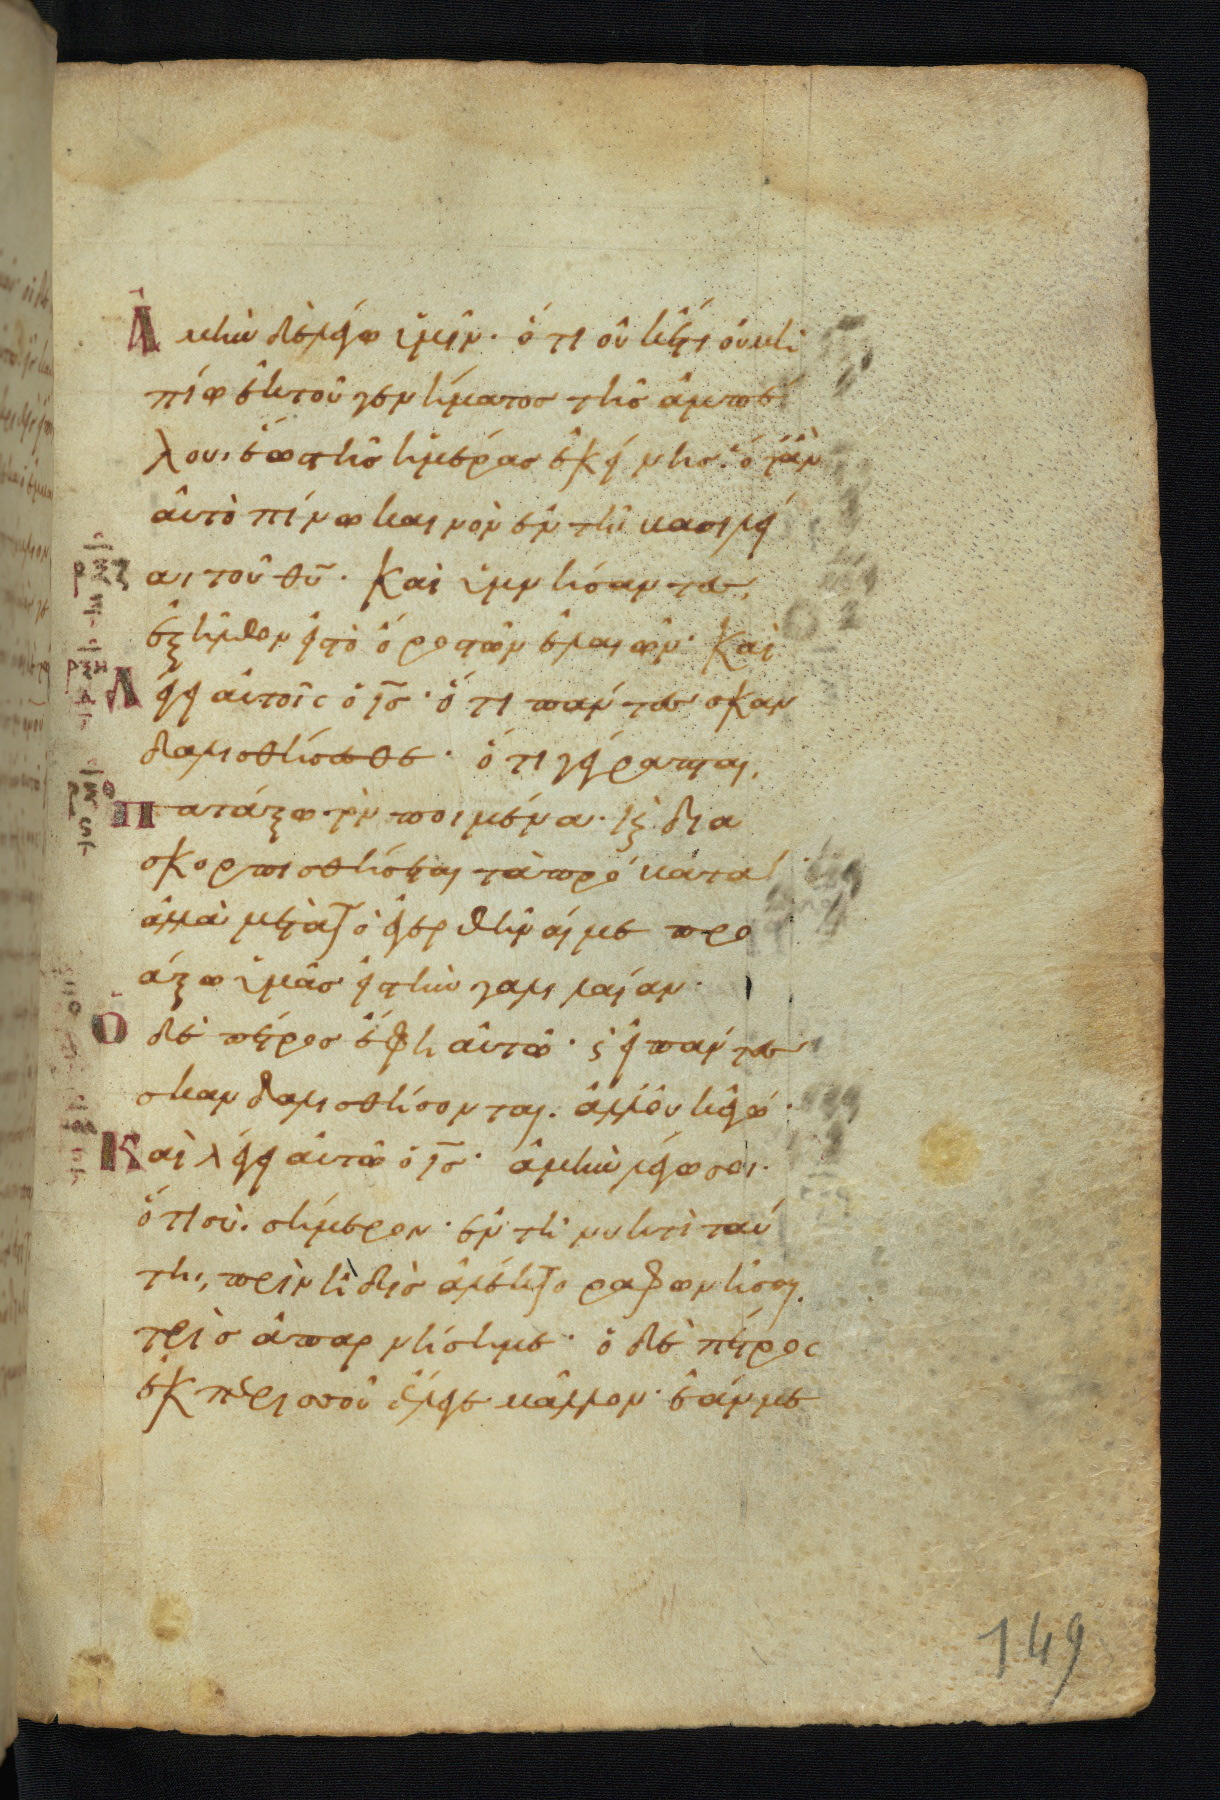 Ἀμὴν δὲ λέγω ὑμῖν· ὅτι οὐκέτι οὐ μὴ
πίω ἐκ τοῦ γενήματος τῆς ἀμπέ
λου, ἕως τῆς ἡμέρας ἐκείνης· ὅταν
αὐτὸ πίνω καινὸν ἐν τῆ βασιλεί
αι τοῦ θῦ· Καὶ ὑμνήσαντες,
ἐξῆλθον εἰς τὸ ὄρος τῶν ἐλαιῶν· Καὶ
λέγει αὐτοῖς ὁ ις· ὅτι πάντες σκαν
δαλισθήσεσθε· ὅτι γέγραπται,
Πατάξω τὸν ποιμένα· καὶ δια
σκορπισθήσεται τὰ πρόβατα·
ἀλλὰ μετὰ τὸ ἐγερθῆναί με προ
άξω ὑμᾶς εἰς τὴν γαλιλαίαν·
Ὁ δὲ πέτρος ἔφη αὐτῶ· καὶ εἰ πάντες
σκανδαλισθήσονται. ἀλλ' οὐκ ἐγώ·
Καὶ λέγει αὐτῶ ὁ ις· ἀμὴν λέγω σοι·
ὅτι σὺ. σήμερον· ἐν τῆ νυκτὶ ταύ
τη, πρὶν ἢ δὶς ἀλέκτορα φωνῆσαι,
τρὶς ἀπαρνήση με· ὁ δὲ πέτρος
ἐκ περισσοῦ ἔλεγε μᾶλλον· ἐάν με
149